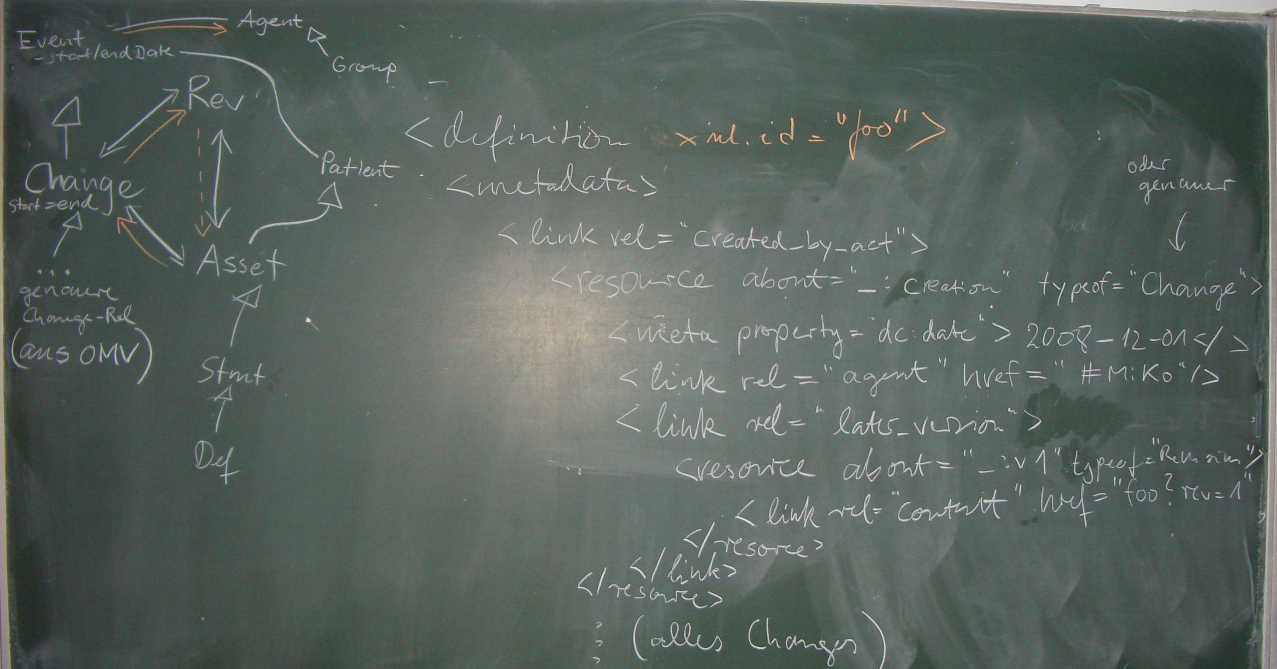 Event
-start/endDate
Agent
Group
Rev
Patient
Change
start=end
Asset
...
genauere
Change-Rel
(aus OMV)
Stmt
Def
<definition xml.id="foo">
<metadata>
oder
genauer
<link rel="created_by_act">
<resource about="_:creation" typeof="Change">
<meta property="dc:date">2008-12-01</>
<link rel="agent" href="#MiKo"/>
<link rel="later_version">
<resource about="_:v1" typeof="Revision">
<link rel="content" href="foo?rev=1"
</resorce>
</link>
</resource>
⋮ (alles Changes)